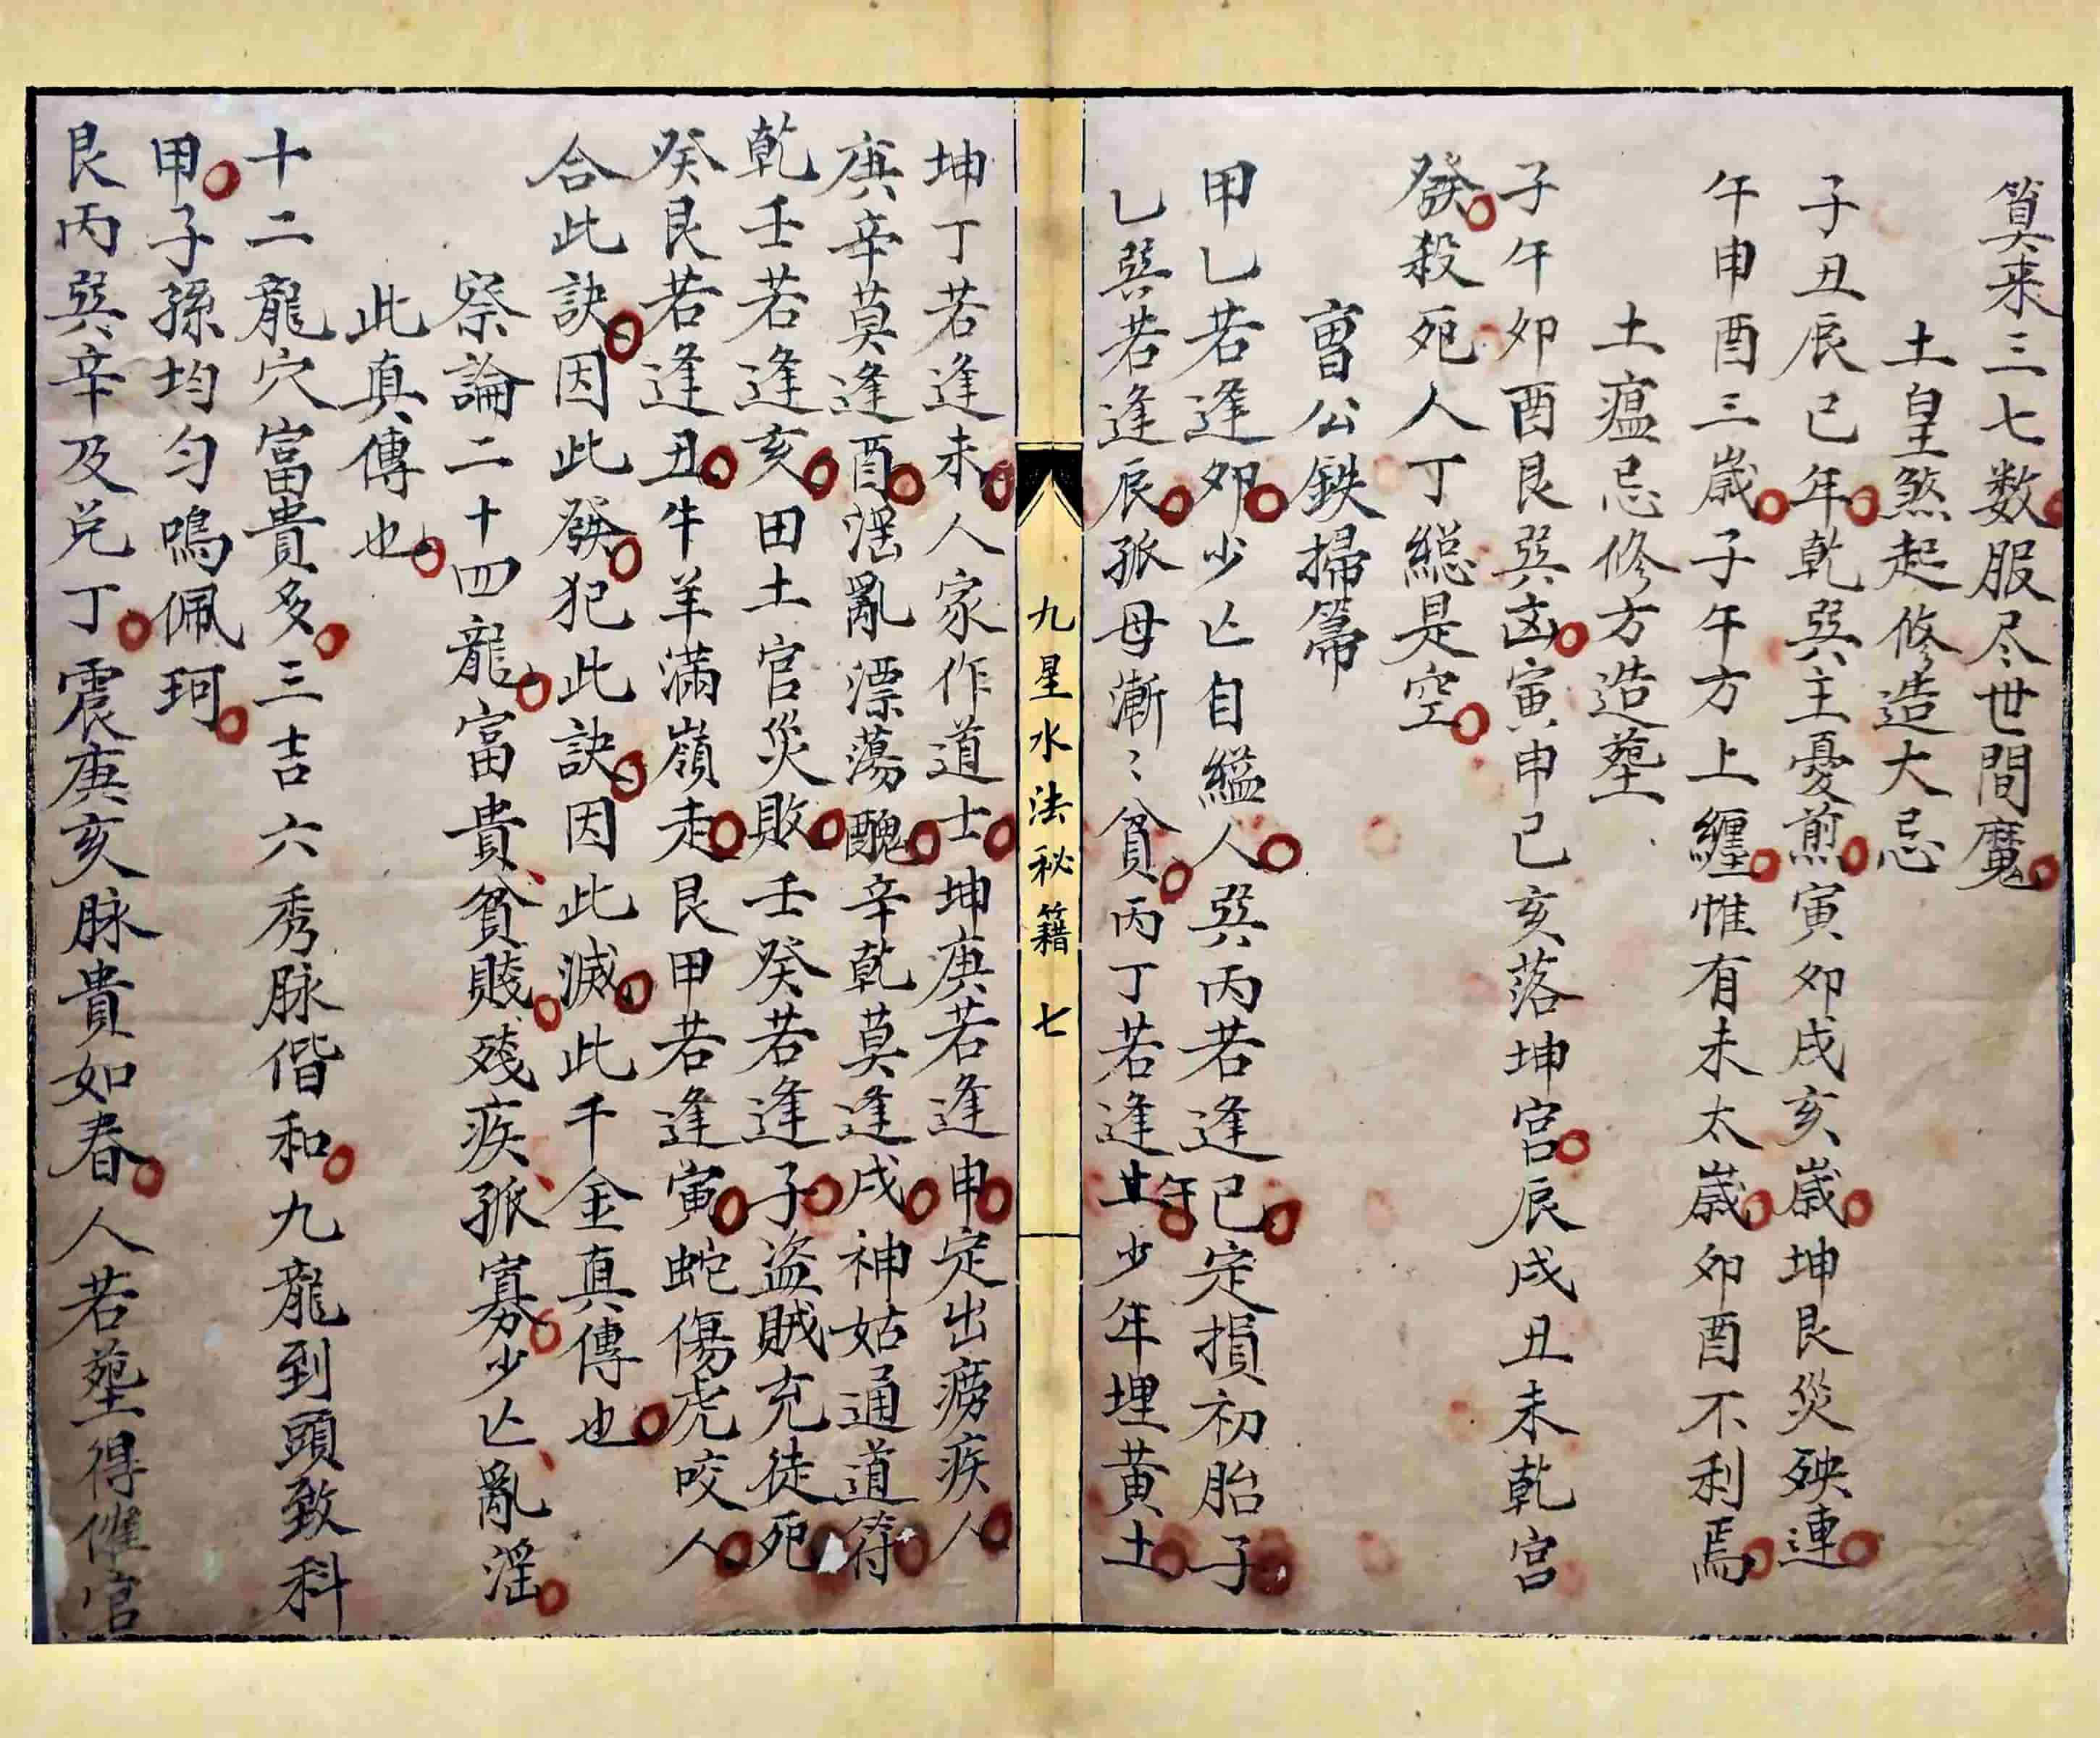 算来三七数服尽世間魔
土皇煞起修造大忌
子丑辰巳年乾巽主憂煎寅卯戌亥歳坤艮災殃連
午申酉三歳子午方上纏惟有未太歳卯酉不利焉
土瘟忌修方造塟
子午卯酉艮巽凶寅申巳亥落坤宮辰戌丑未乾宮
發殺死人丁縂是空
曹公鉄掃箒
甲乙若逢卯少亡自縊人巽丙若逢巳定損初胎子
乙巽若逢辰孤母漸〻貧丙丁若逢午少年埋黄土
九星水法秘籍 七
坤丁若逢未人家作道士坤庚若逢申定出癆疾人
庚辛莫逢酉滛亂漂蕩醜辛乾莫逢戌神姑通道符
乾壬若逢亥田土官災敗壬癸若逢子盗賊充徒死
癸艮若逢丑牛羊滿嶺走艮甲若逢寅蛇傷虎咬人
合此訣因此發犯此訣因此滅此千金真傳也
察論二十四龍富貴貧賤殘疾孤寡少亡亂滛
此真傳也
十二龍穴富貴多三吉六秀脉偕和九龍到頭致科
甲子孫均匀鳴佩珂
艮丙巽辛及兑丁震庚亥脉貴如春人若塟得催官